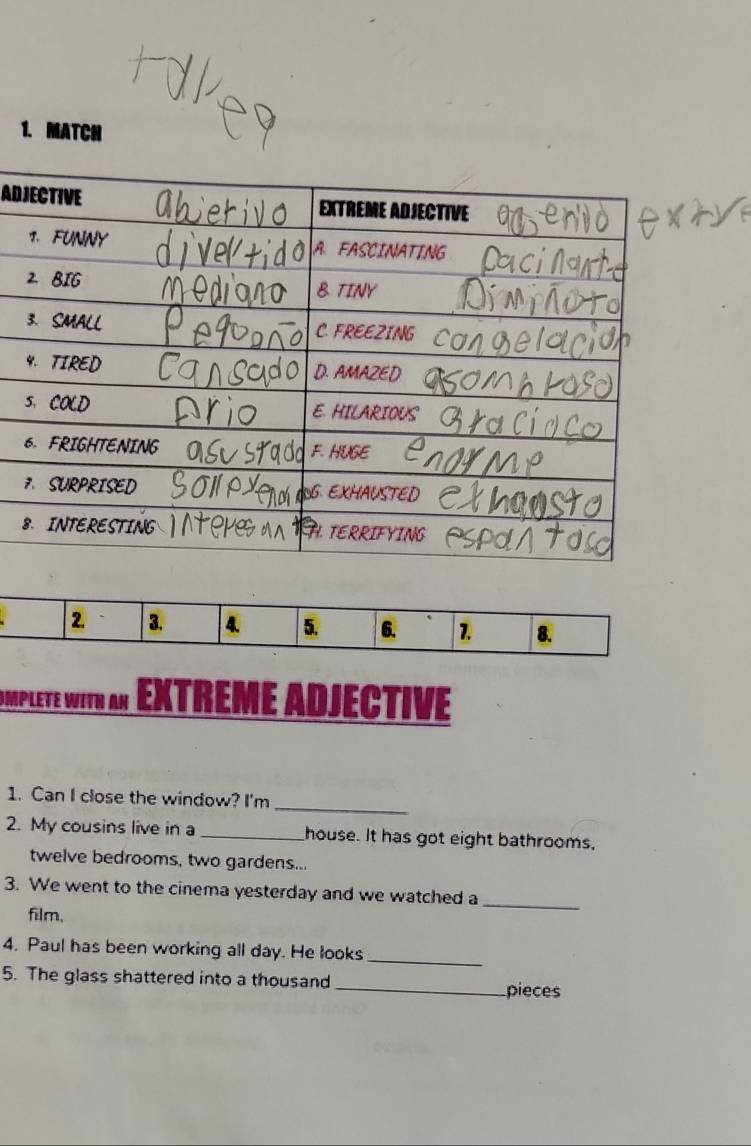 tarea
1. MATCH
ADJECTIVE abjetivo EXTREME ADJECTIVE
1. FUNNY divertido A. FASCINATING Facinante
2. BIG mediano B. TINY Diminoto
3. SMALL Peqooño C. FREEZING congelacion
4. TIRED Cansado D. AMAZED asombroso
5. COLD Frio E. HILARIOUS Gracioco
6. FRIGHTENING asustado F. HUGE enorme
7. SURPRISED G. EXHAUSTED exhaosto
8. INTERESTING interesante H. TERRIFYING espantoso
2. 3. 4. 5. 6. 7. 8.
OMPLETE WITH AN EXTREME ADJECTIVE
1. Can I close the window? I'm ____________
2. My cousins live in a ____________ house. It has got eight bathrooms,
twelve bedrooms, two gardens...
3. We went to the cinema yesterday and we watched a ____________
film.
4. Paul has been working all day. He looks ____________
5. The glass shattered into a thousand ____________ pieces